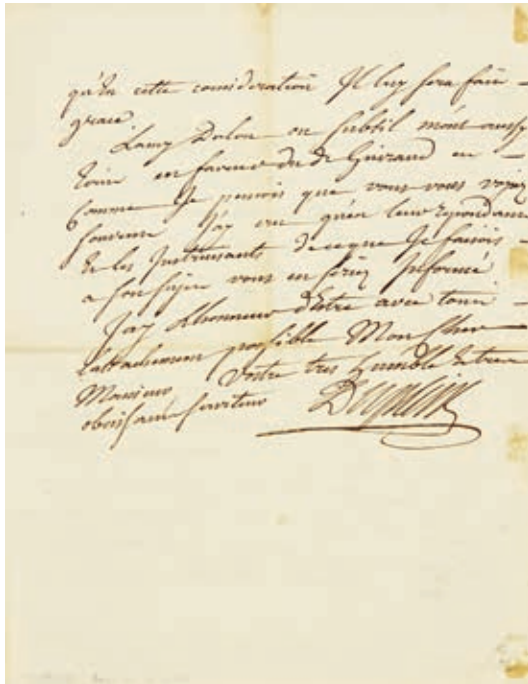 qu'en cette consideration Il luy sera fair
grace
Lamy Dolon ou Subtil m'ont aussy
Ecrir en faveur du de Guiraud en
Comme Je pensois que vous vous voyiez
souvenr J'ay cru qu'en leur repondant
Et les Instruisants de ce que Je faisois
a son sujer vous en seriez Informé
J'ay L'honneur d'Etre avec tour
L'attachement possible Mon Cher
Monsieur Votre tres humble Et tres
obeissanr serviteur